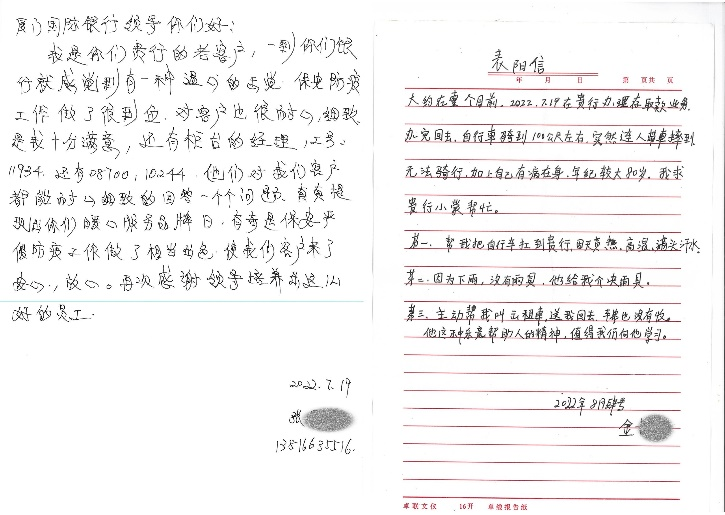 厦门国际银行领导你们好:
我是你们贵行的老客户,一到你们银
行就感觉到有一种温心的感觉,保安防疫
工作做了很到位,对客户也很耐心,细致
是我十分满意,还有柜台的经理,工号:
11934,还有08700,10244,他们对我们客户
都能耐心细致的回答一个个问题,真实体
现出你们暖心服务品牌日,有其是保安严
做了相当出色,使我们客户来了
安心,放心。再次感谢领导培养出这么
好的员工.
2022.7.19
张
13816635516.
表阳信
年 月 日 第 页共 页
大约在一个月前,2022.7.19在贵行办理存取款业务,
办完回去,自行车骑到100公尺左右,突然连人
无法骑行,加上自己有病在身,年纪较大80岁,我求
贵行小裴帮忙。
第一.帮我把自行车扛到贵行,炎热,高温,满头汗水
第二.因为下雨,没有雨具,他给我介决雨具。
第三.主动帮我叫出租車,送我回去,手术也没有收。
他这种乐意帮助人的精神,值得我们向他学习。
2022年8月
金
卓联文仪 16开 单线报告纸